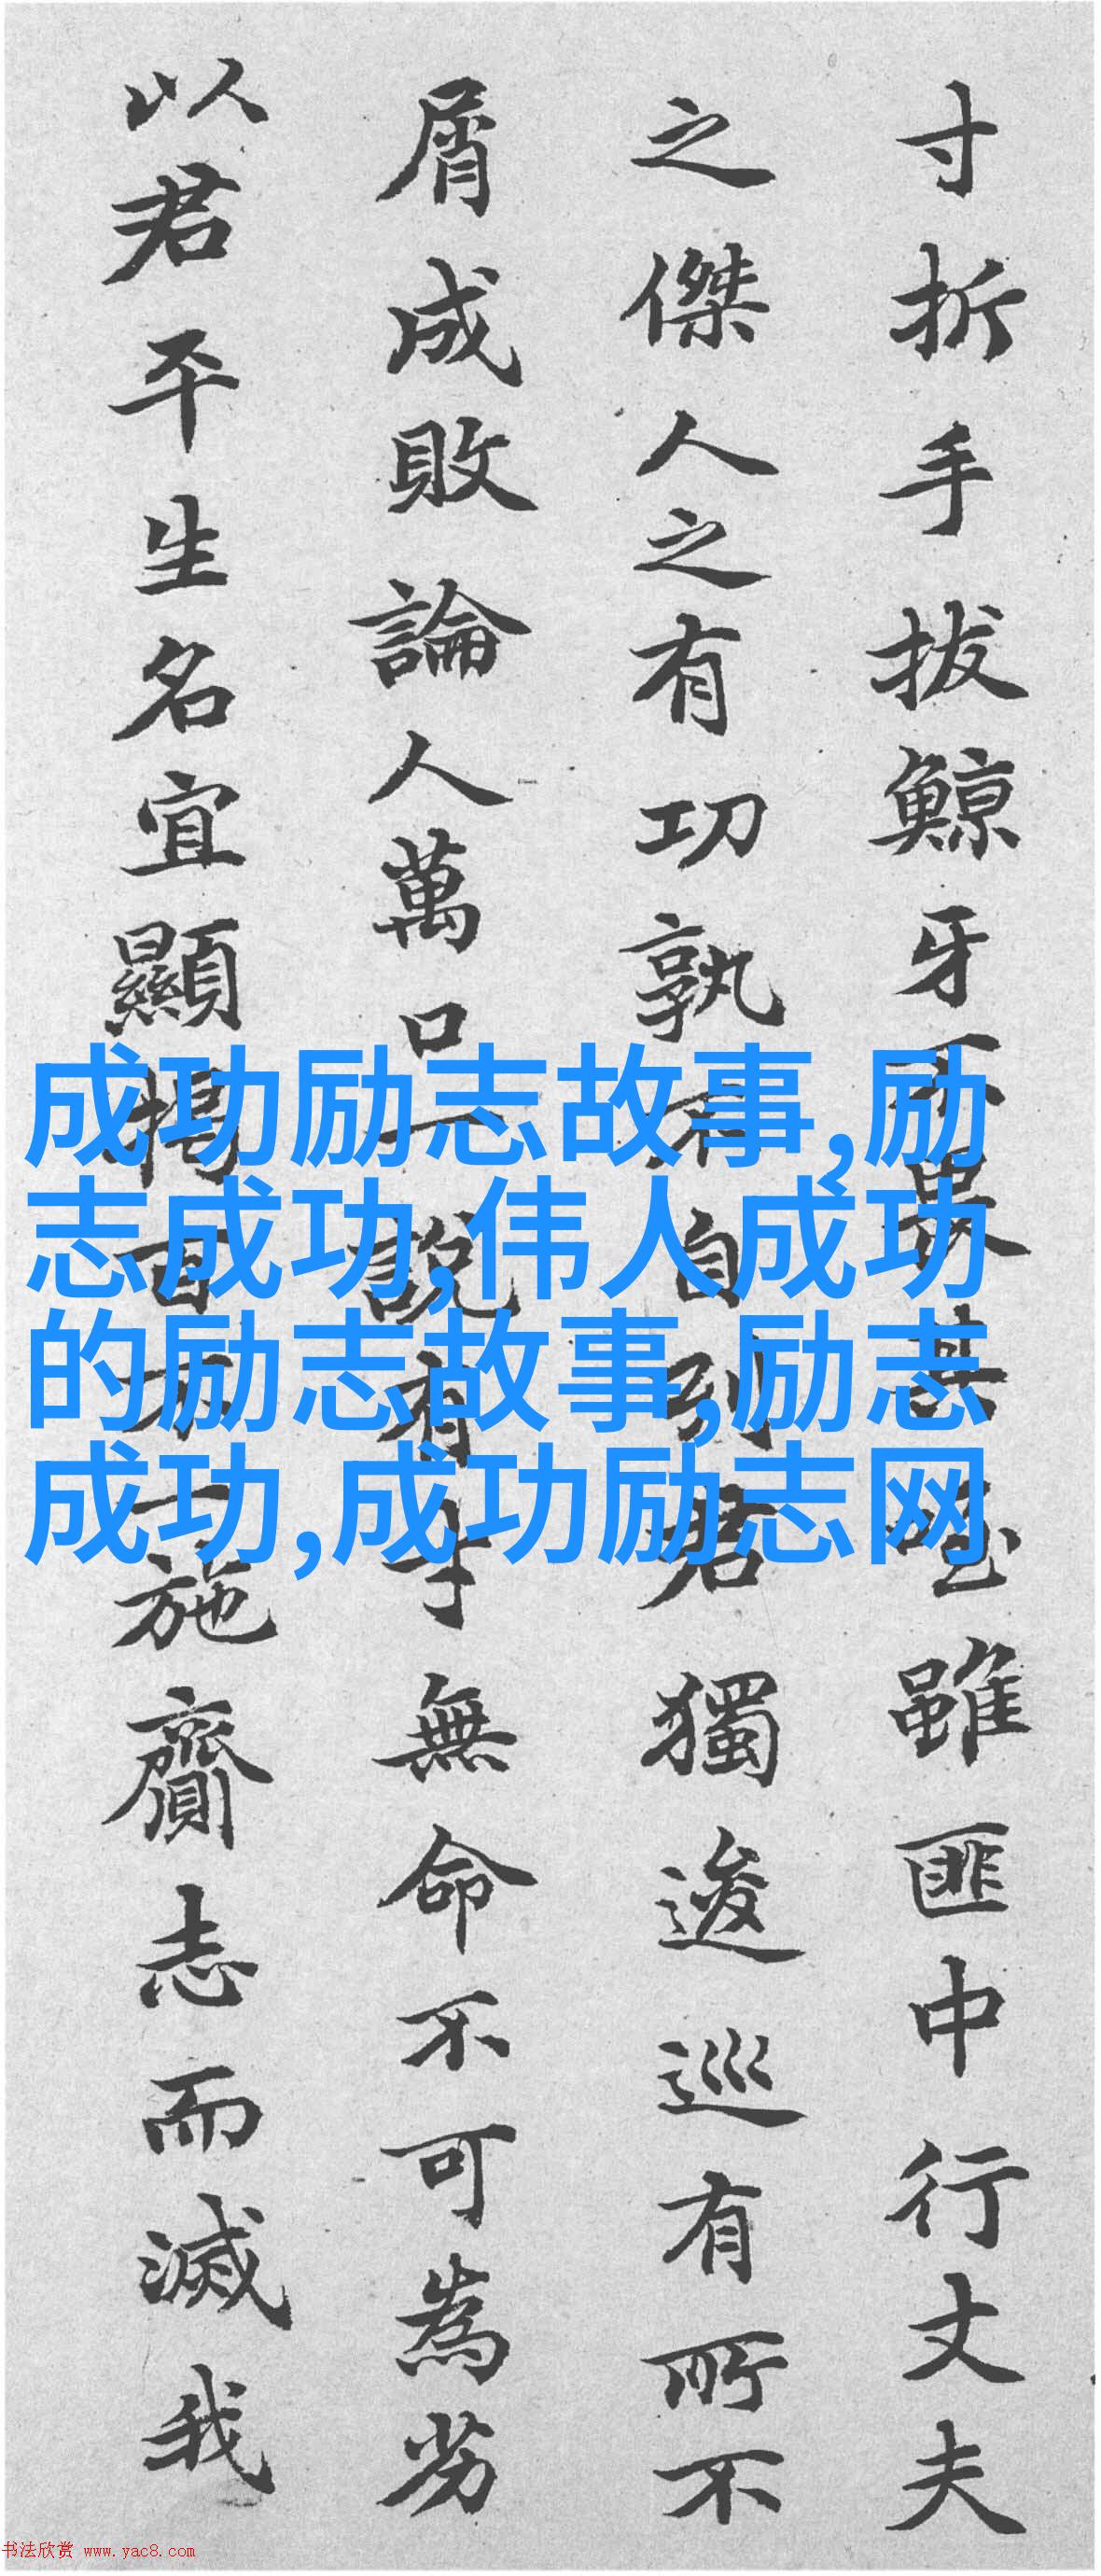 寸折手拔鯨牙不畏其噬雖匪中行丈夫
之傑人之有功孰不自列君獨逡巡有所不
屑成敗論人萬口一說有才無命不可為勞
以君平生名宜顯揚百不一施齎志而滅我
成功励志故事,励
志成功,伟人成功
的励志故事,励志
成功,成功励志网
书法欣赏 www.yac8.com